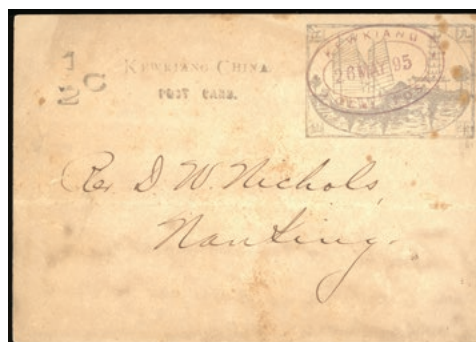 1/2 C
KEWKIANG CHINA
POST CARD.
KEWKIANG
26 MAY 95
LOCAL POST
九
江
Rev D. W. Nichols,
Nanking.